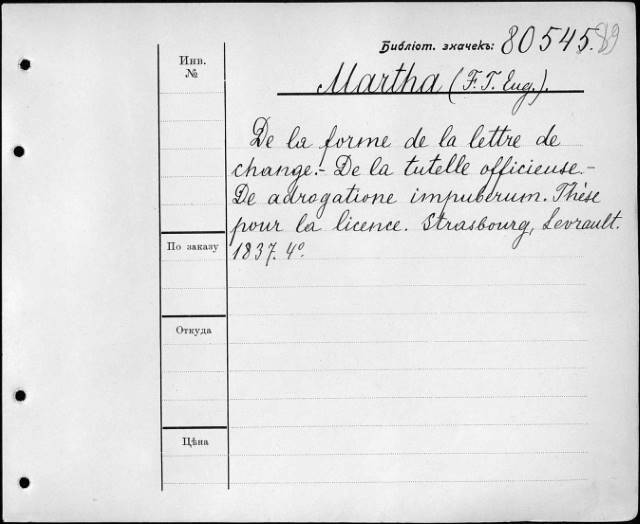 Библіот. значекъ: 80545.89
Инв.
№
Martha (F. T. Eug.).
De la forme de la lettre de
change.- De la tutelle officieuse.-
De adrogatione impuberum. Thèse
pour la licence. Strasbourg, Levrault.
1837. 4º.
По заказу
Откуда
Цѣна